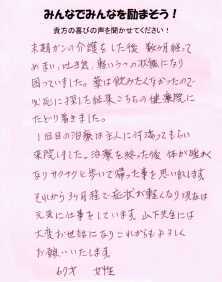 みんなでみんなを励まそう！
貴方の喜びの声を聞かせてください！
末期ガンの介護をした後 数ヶ月経って
めまい、吐き気、軽いうつの状態になり
困っていました。薬は飲みたくなかったので
必死に探した結果こちらの健療院に
たどり着きました。
1回目の治療は主人に付添ってもらい
来院しました。治療を終った後 体が暖かく
なりサクサクと歩いて帰った事を思い出します
それから3ヶ月程で症状が軽くなり現在は
元気に仕事をしています。山下先生には
大変お世話になりこれからもよろしく
お願いいたします。
67才 女性